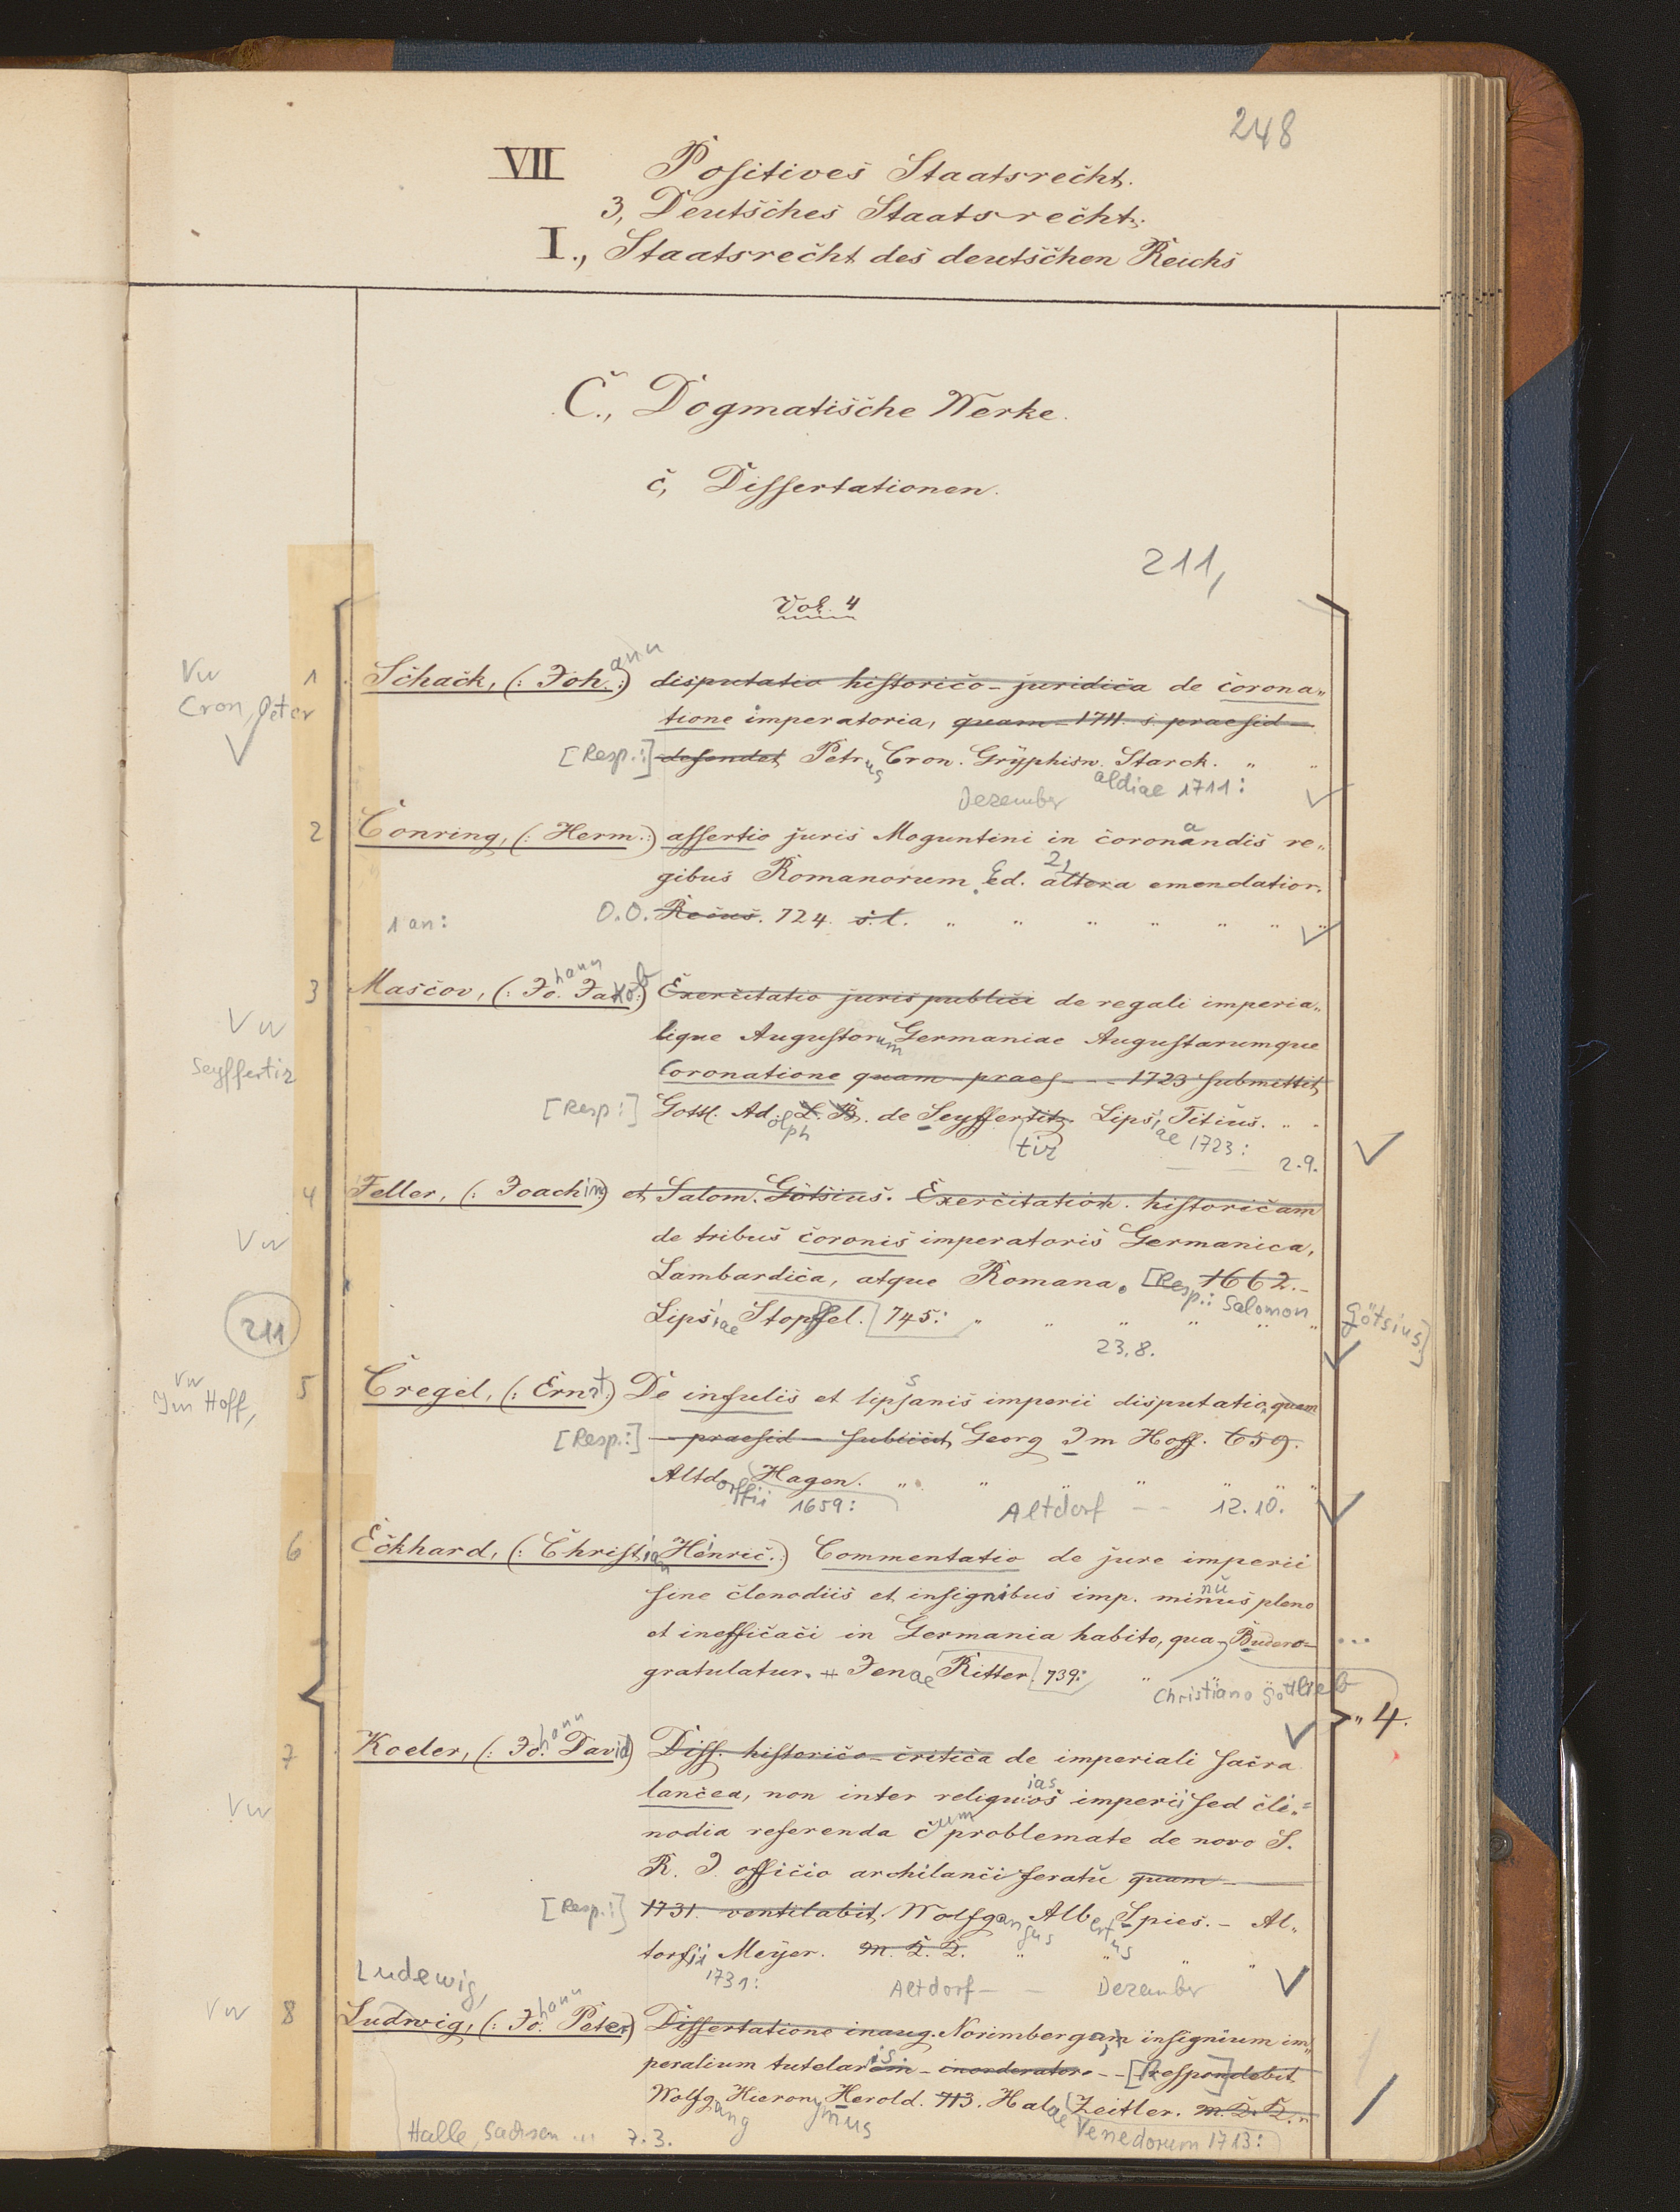 248
VII Positives Staatsrecht.
3, Deutsches Staatsrecht.
I., Staatsrecht des deutschen Reichs
C., Dogmatische Werke.
c, Dissertationen.
211,
Vol. 4
Vw 1 Schack, (: Joh.:) ann disputatio historico-juridica de corona„
Cron, Peter tione imperatoria, quam 1711. s. praesid
[Resp.:] defendet Petrus Cron. Gryphisw. Starck. „ „
Dezember aldiae 1711:
2 Conring, (: Herm.:) assertio juris Moguntini in coronandis re„
gibus Romanorum. Ed. altera 2, emendatior.
1 an: O.O. Recus. 724. s.l. „ „ „ „ „ „ „
3 Mascov, (: Jo. hann Jakob:) Exercitatio juris publici de regali imperia„
Vw lique Augustorum Germaniae Augustarumque
Seyffertiz Coronatione quam praes - - - 1723 submittit
[Resp:] Gottl. Adolph L. B. de Seyffertitz. tiz Lipsiae Titius. „ „
1723: 2.9.
4 Feller, (: Joachim) et Salom. Götsius. Exercitation. historicam
Vw de tribus coronis imperatoris Germanica,
Lambardica, atque Romana. 1662. - [Resp.: Salomon Götsius]
211 Lipsiae Stopffel. 745: „ „ „ „ „ „
23.8.
Vw Im Hoff, 5 Cregel, (: Ernst:) De insulis et lipsanis imperii disputatio, quam
[Resp.:] - praesid - subiicit Georg Im Hoff. 659.
Altdorffii Hagen. „ „ „ „ „ „ „
1659: Altdorf - - 12.10.
6 Eckhard, (: Christian Henric.:) Commentatio de jure imperii
sine clenodiis et insignibus imp. minus pleno
et inefficaci in Germania habito, qua - Budero - ...
gratulatur. + Jenae Ritter. 739: „ „ „
Christiano Gottlieb
„ 4.
7 Koeler, (: Jo. hann David) Diss. historico-critica de imperiali sacra
Vw lancea, non inter reliquias imperii sed cli„
nodia referenda cum problemate de novo S.
R. I. officio archilanciferatu quam
[Resp.:] 1731. ventilabit Wolfgangus Albertus Spies. - Al„
torfii Meyer. m. 2. 2. „ „ „ „
1731: Altdorf - - Dezember
Ludewig,
Vw 8 Ludwig, (: Jo. hann Peter) Dissertatione inaug. Norimberga, insignium im„
peralium tutelaris - inorderatore - - [Respondebit]
Wolfgang Hieronymus Herold. 713. Halae Zeitler. m. 2. 2. „
Halle, Sachsen ... 7.3. Venedorum 1713: